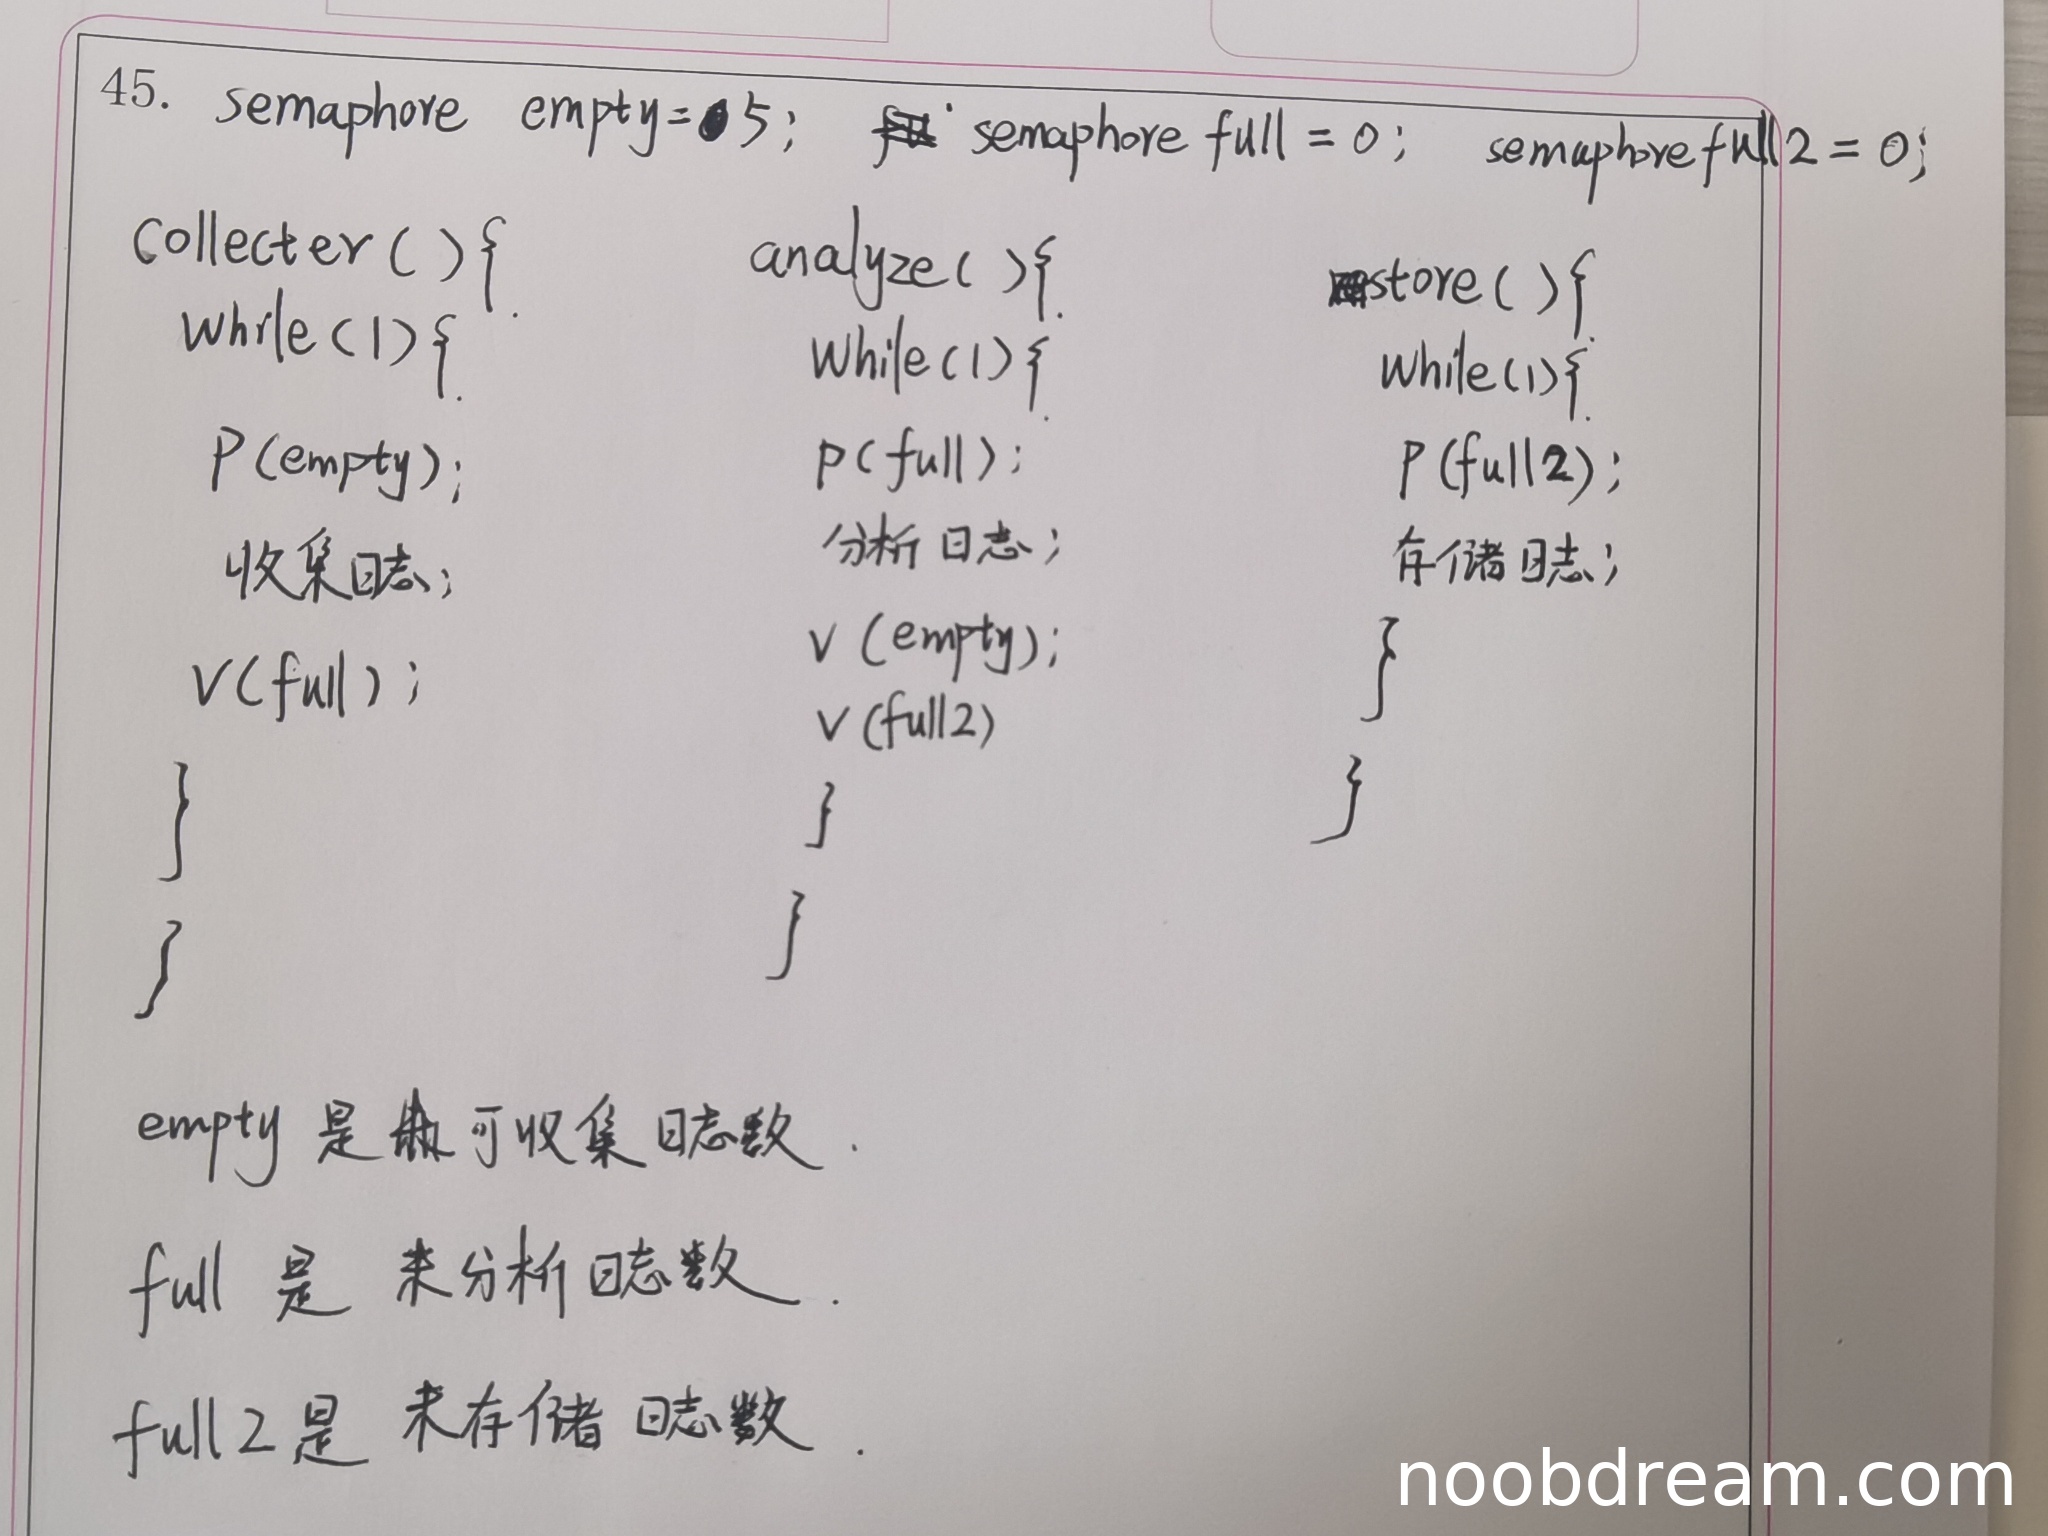 45. semaphore empty=5; semaphore full = 0; semaphore full2 = 0;
Collecter ( ) {
While (1) {
P(empty);
收集日志;
V(full);
}
}
analyze ( ) {
While (1) {
P(full);
分析日志;
V(empty);
V(full2)
}
}
store ( ) {
While (1) {
P(full2);
存储日志;
}
}
empty 是 可收集日志数.
full 是 未分析日志数.
full2是 未存储日志数.
noobdream.com